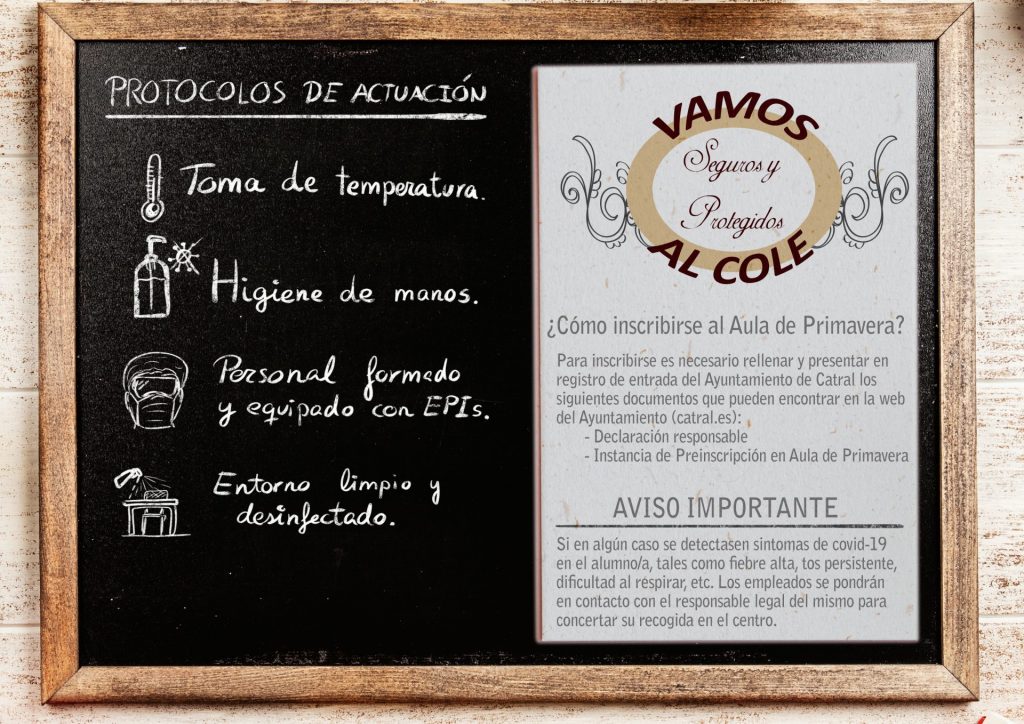 PROTOCOLOS DE ACTUACIÓN
Toma de temperatura.
Higiene de manos.
Personal formado
y equipado con EPIs.
Entorno limpio y
desinfectado.
VAMOS
Seguros y
Protegidos
AL COLE
¿Cómo inscribirse al Aula de Primavera?
Para inscribirse es necesario rellenar y presentar en
registro de entrada del Ayuntamiento de Catral los
siguientes documentos que pueden encontrar en la web
del Ayuntamiento (catral.es):
- Declaración responsable
- Instancia de Preinscripción en Aula de Primavera
AVISO IMPORTANTE
Si en algún caso se detectasen sintomas de covid-19
en el alumno/a, tales como fiebre alta, tos persistente,
dificultad al respirar, etc. Los empleados se pondrán
en contacto con el responsable legal del mismo para
concertar su recogida en el centro.